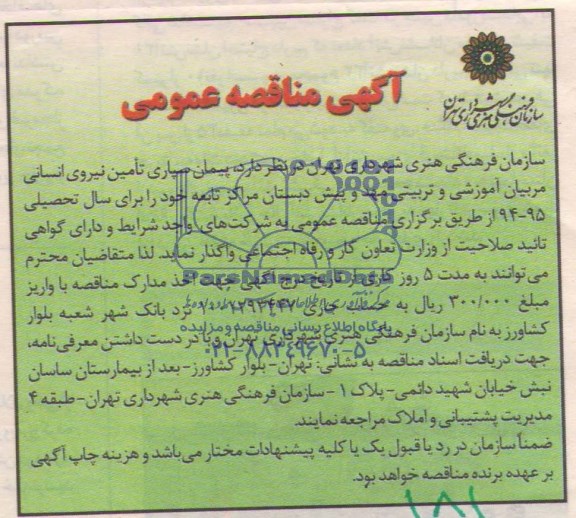 آگهی مناقصه عمومی
سازمان فرهنگی هنری شهرداری تهران
سازمان فرهنگی هنری شهرداری تهران در نظر دارد، پیمان سپاری تأمین نیروی انسانی
مربیان آموزشی و تربیتی مهد و پیش دبستان مراکز تابعه خود را برای سال تحصیلی
۹۴-۹۵ از طریق برگزاری مناقصه عمومی به شرکت‌های واجد شرایط و دارای گواهی
تائید صلاحیت از وزارت تعاون کار و رفاه اجتماعی واگذار نماید. لذا متقاضیان محترم
می‌توانند به مدت ۵ روز کاری از تاریخ درج آگهی جهت اخذ مدارک مناقصه با واریز
مبلغ ۳۰۰/۰۰۰ ریال به حساب جاری نزد بانک شهر شعبه بلوار
کشاورز به نام سازمان فرهنگی هنری شهرداری تهران و با در دست داشتن معرفی‌نامه،
جهت دریافت اسناد مناقصه به نشانی: تهران- بلوار کشاورز- بعد از بیمارستان ساسان
نبش خیابان شهید دائمی- پلاک ۱ - سازمان فرهنگی هنری شهرداری تهران- طبقه ۴
مدیریت پشتیبانی و املاک مراجعه نمایند.
ضمناً سازمان در رد یا قبول یک یا کلیه پیشنهادات مختار می‌باشد و هزینه چاپ آگهی
بر عهده برنده مناقصه خواهد بود.
ParsNamadData
پایگاه اطلاع رسانی مناقصه و مزایده
۰۲۱-۸۸۳۴۹۶۷۰-۵
۱۸۱